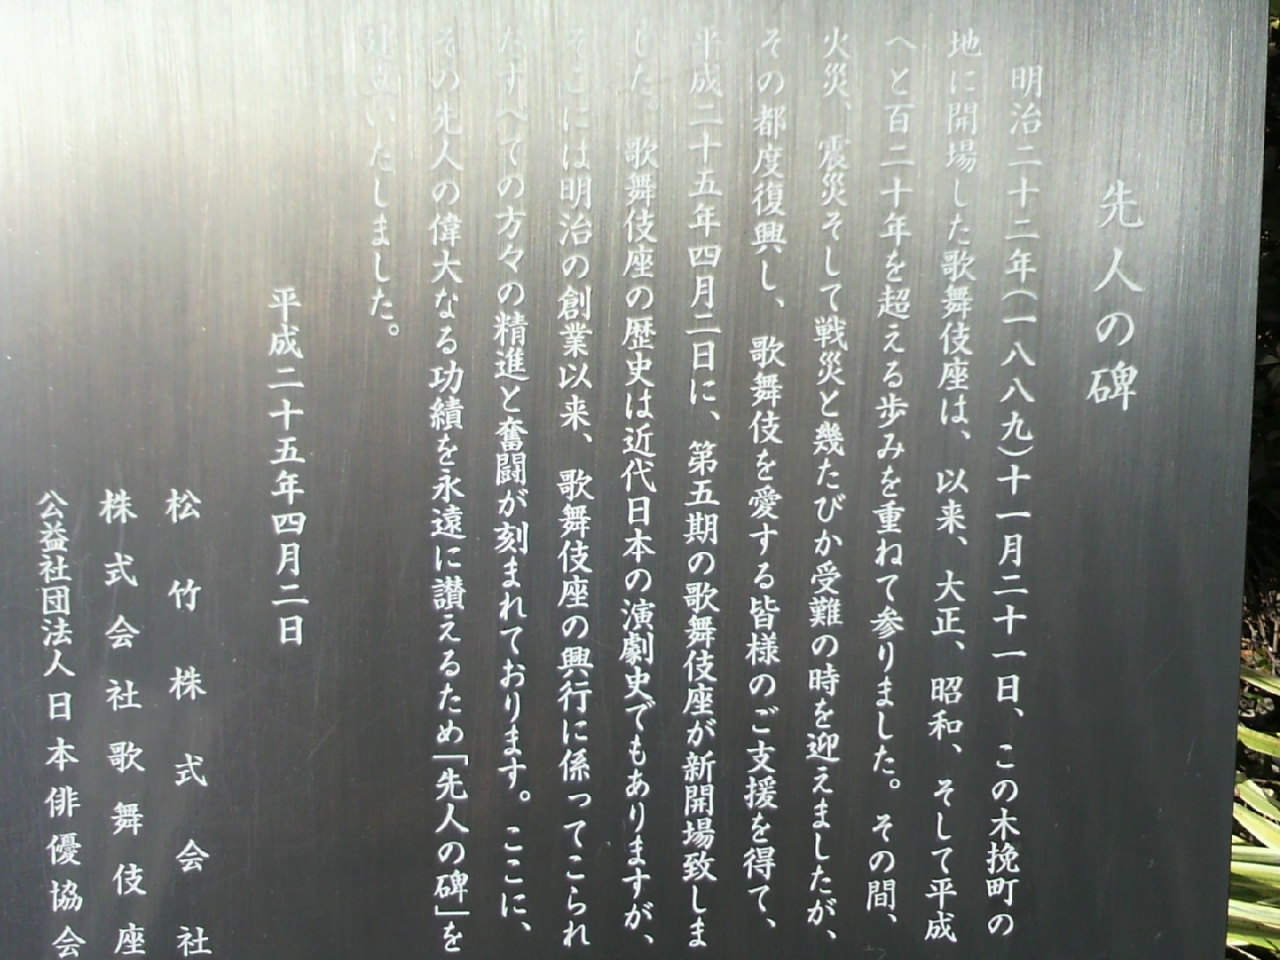 先人の碑
明治二十二年(一八八九)十一月二十一日、この木挽町の
地に開場した歌舞伎座は、以来、大正、昭和、そして平成
へと百二十年を超える歩みを重ねて参りました。その間、
火災、震災そして戦災と幾たびか受難の時を迎えましたが、
その都度復興し、歌舞伎を愛する皆様のご支援を得て、
平成二十五年四月二日に、第五期の歌舞伎座が新開場致しま
した。歌舞伎座の歴史は近代日本の演劇史でもありますが、
そこには明治の創業以来、歌舞伎座の興行に係ってこられ
たすべての方々の精進と奮闘が刻まれております。ここに、
その先人の偉大なる功績を永遠に讃えるため「先人の碑」を
建立いたしました。
平成二十五年四月二日
松竹株式会社
株式会社歌舞伎座
公益社団法人日本俳優協会